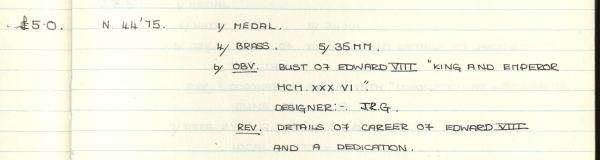 £5.0. N. 44'75. 1/ MEDAL.
4/ BRASS. 5/ 35 MM.
6/ OBV. BUST OF EDWARD VIII "KING AND EMPEROR
MCM. XXX VI".
DESIGNER:-. J.R.G.
REV. DETAILS OF CAREER OF EDWARD VIII
AND A DEDICATION.